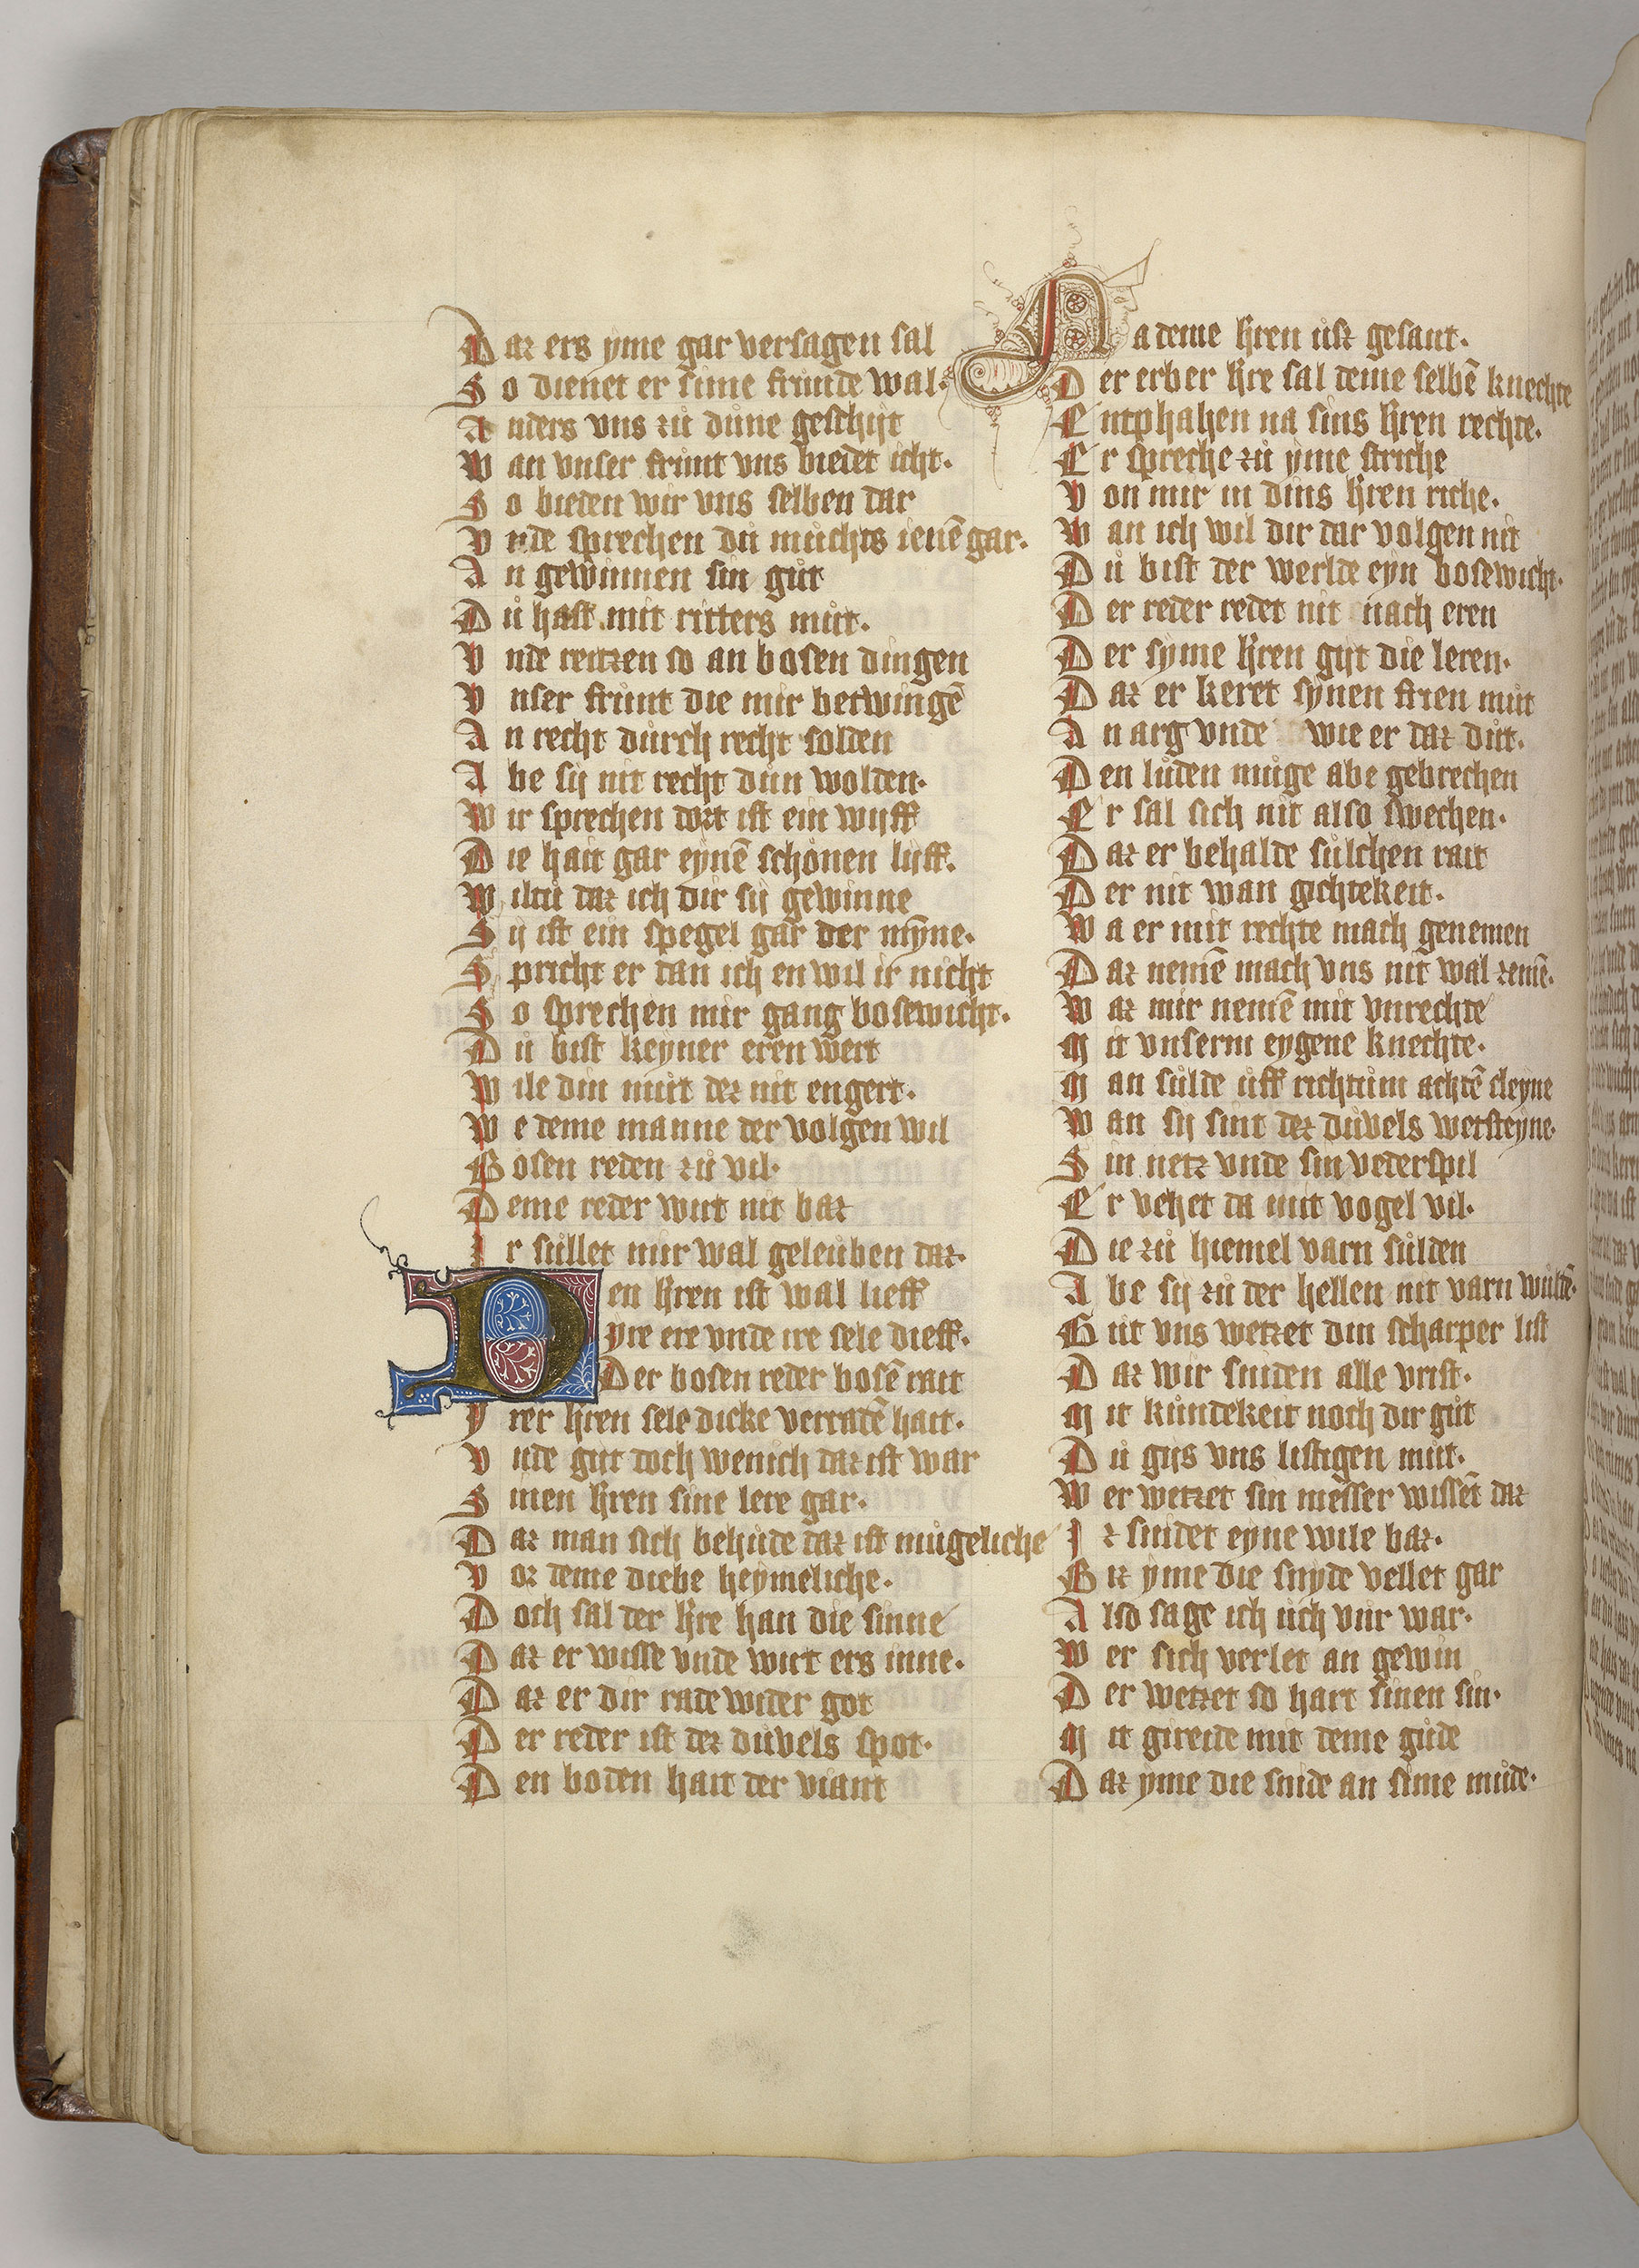 Daz ers yme gar versagen sal
So dienet er sime frunde wal.
Anders vns zů důne geschijt
Wan vnser frunt vns biedet icht.
So bieden wir vns selben dar
Vnde sprechen dů můchts ienē gar.
An gewinnen sin gůt
Dů hast mit ritters můt.
Vnde reitzen so an bosen dingen
Vnser frunt die mir betwingē
An recht důrch recht solden
Abe sij nit recht dun wolden.
Wir sprechen dort ist ein wijff
Die hait gar eynē schonen lijff.
Wiltu daz ich dir sij gewinne
Sij ist ein spegel gar der mȳne.
Spricht er dan ich en wil ir nicht
So sprechen mir gang bosewicht.
Dů bist keyner eren wert
Wile din můt dez nit engert.
We deme manne der volgen wil
Bosen reden zů vil.
Deme reder wirt nit baz
Ir sůllet mir wal geleůben daz.
Den h̄ren ist wal lieff
yre ere vnde ire sele dieff.
Der bosen reder bosē rait
Yrer h̄ren sele dicke verradē hait.
Vnde gijt doch wenich daz ist war
Sinen h̄ren sine lere gar.
Daz man sich behůde daz ist můgeliche
Vor deme diebe heymeliche.
Doch sal der h̄re han die sinne
Daz er wisse vnde wirt ers inne.
Daz er dir rade wider got
Der reder ist dez důvels spot.
Den boden hait der viant
Na deme h̄ren ůsz gesant.
Der erber h̄re sal deme selbē knechte
Entphahen na sins h̄ren rechte.
Er spreche zů yme striche
Von mir in dins h̄ren riche.
Wan ich wil dir dar volgen nit
Dů bist der werlde eyn bosewicht.
Der reder redet nit nach eren
Der syme h̄ren gijt die leren.
Daz er keret synen frien můt
An arg vnde wie er daz důt.
Den lůden muge abe gebrechen
Er sal sich nit also swechen.
Daz er behalde sulchen rait
Der nit wan gichtekeit.
Wa er mit rechte mach genemen
Daz nemē mach vns nit wal zemē.
Waz mir nemē mit vnrechte
Mit vnserm eygene knechte.
Man sůlde ůff richtům achtē cleyne
Wan sij sint dez důvels wetsteyne.
Sin netz vnde sin vederspil
Er vehet da mit vogel vil.
Die zů hiemel varn sůlden
Abe sij zů der hellen nit varn wůldē.
Gijt vns wetzet din scharper list
Daz wir sniden alle vrist.
Mit kůndekeit noch dir gůt
Dů gijs vns listigen můt.
Wer wetzet sin messer wissēt daz
Iz snidet eyne wile baz.
Biz yme die snyde vellet gar
Also sage ich ůch vur war.
Wer sich verlet an gewin
Der wetzet so hart sinen sin.
Mit gireide mit deme gůde
Daz yme die snide an sime můde.